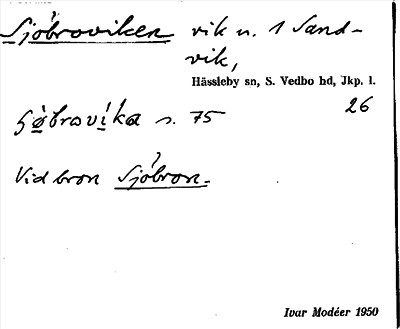 Sjöbroviken vik u. 1 Sand-
vik,
Hässleby sn, S. Vedbo hd, Jkp. l.
26
s. 75
Vid bron Sjöbron.
Ivar Modéer 1950